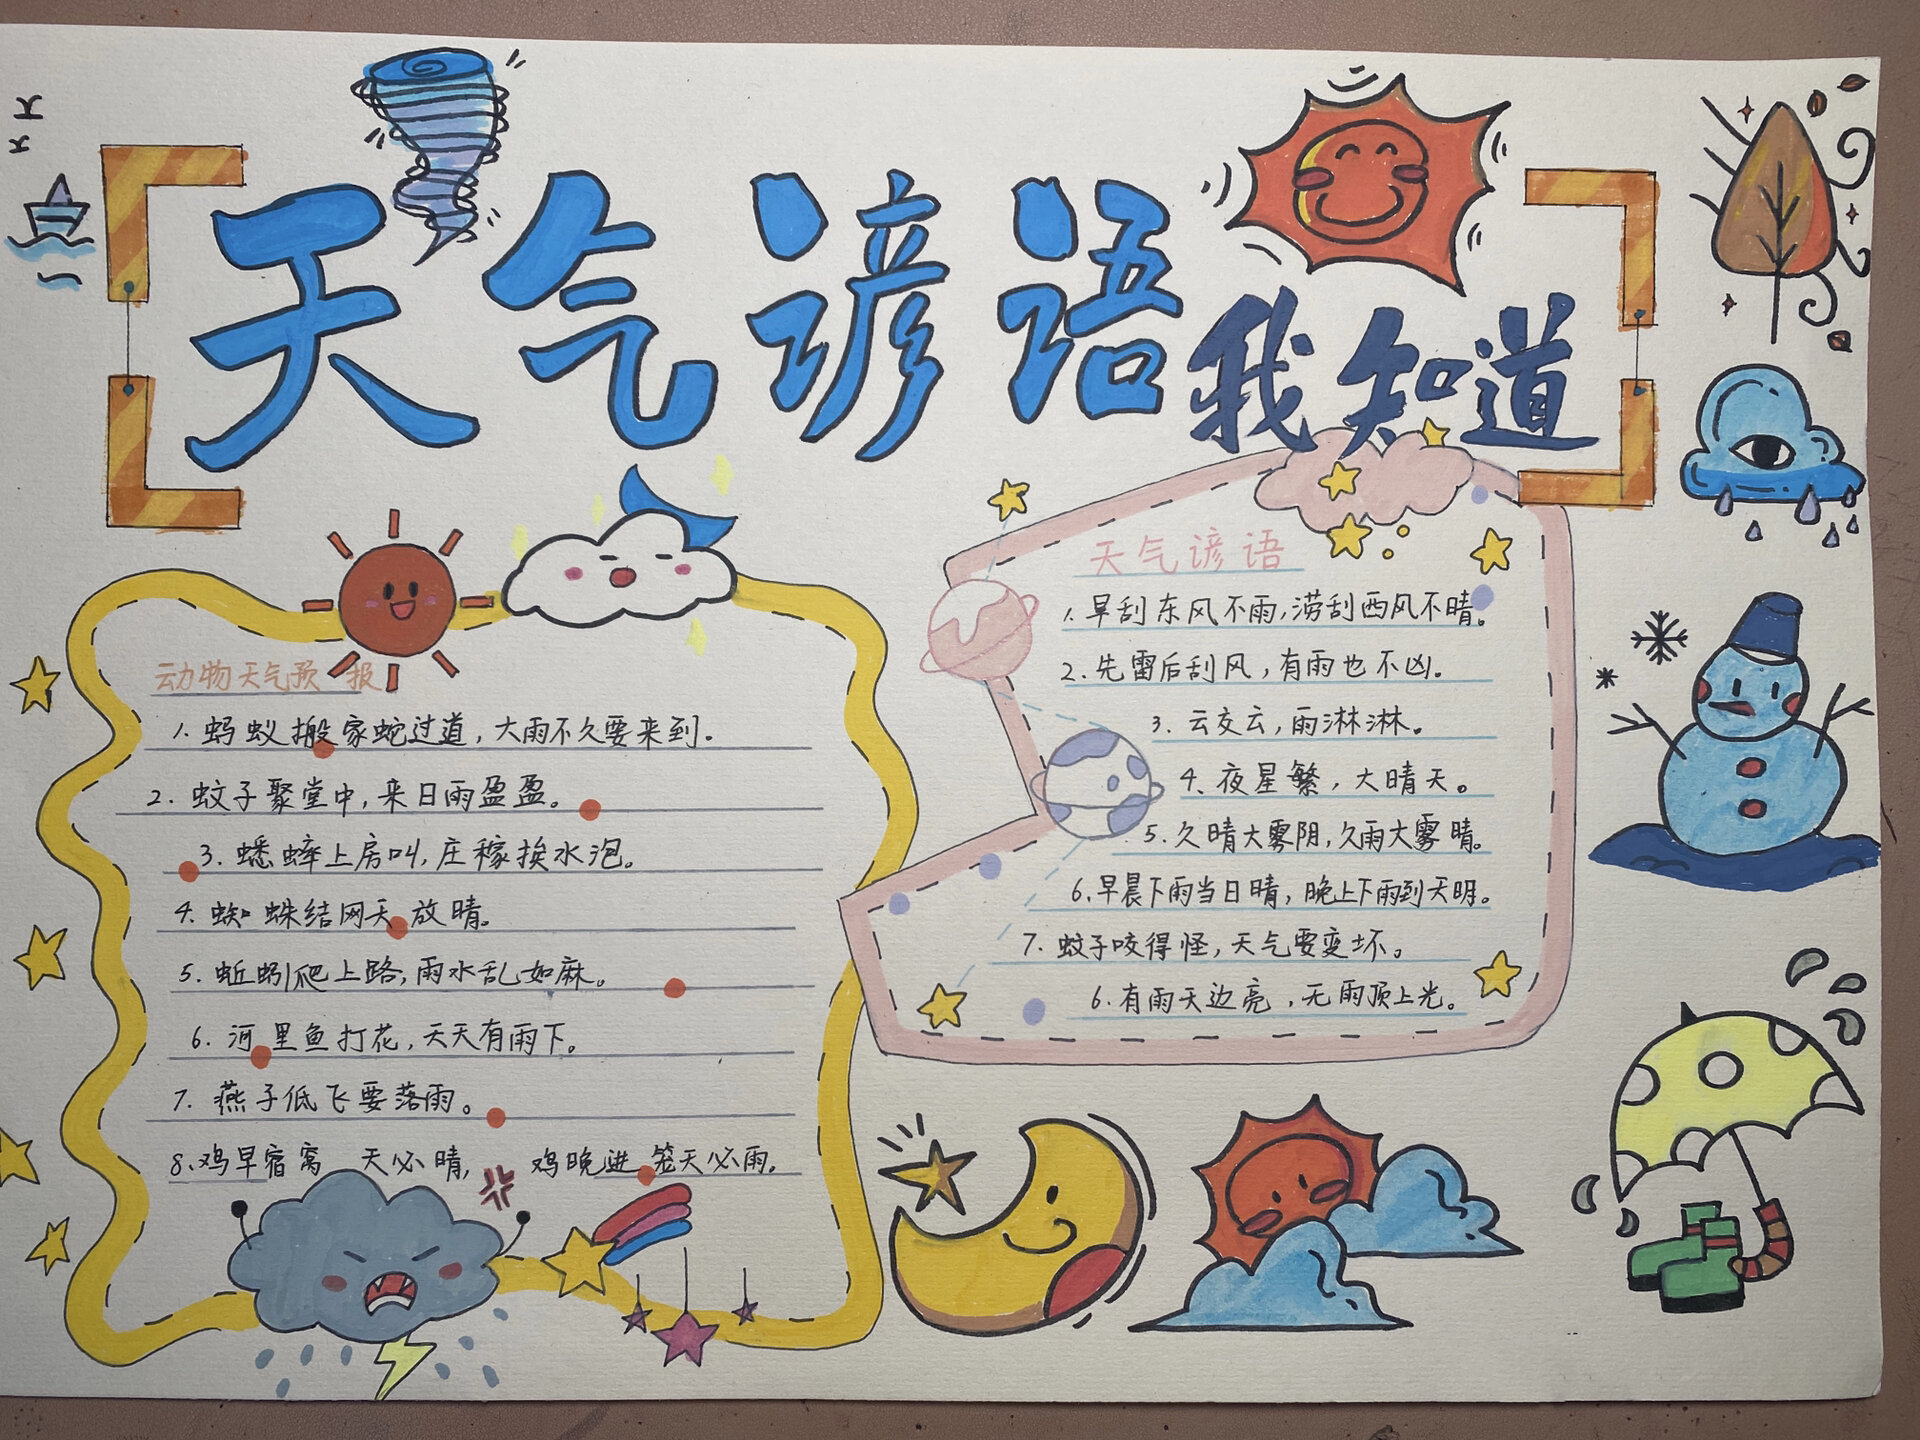 天气谚语
我知道
动物天气预报
1. 蚂蚁搬家蛇过道，大雨不久要来到。
2. 蚊子聚堂中，来日雨盈盈。
3. 蟋蟀上房叫，庄稼挨水泡。
4. 蜘蛛结网天放晴。
5. 蚯蚓爬上路，雨水乱如麻。
6. 河里鱼打花，天天有雨下。
7. 燕子低飞要落雨。
8. 鸡早宿窝 天必晴， 鸡晚进笼天必雨。
天气谚语
1. 早刮东风不雨，涝刮西风不晴。
2. 先雷后刮风，有雨也不凶。
3. 云交云，雨淋淋。
4. 夜星繁，大晴天。
5. 久晴大雾阴，久雨大雾晴。
6. 早晨下雨当日晴，晚上下雨到天明。
7. 蚊子咬得怪，天气要变坏。
6. 有雨天边亮，无雨顶上光。